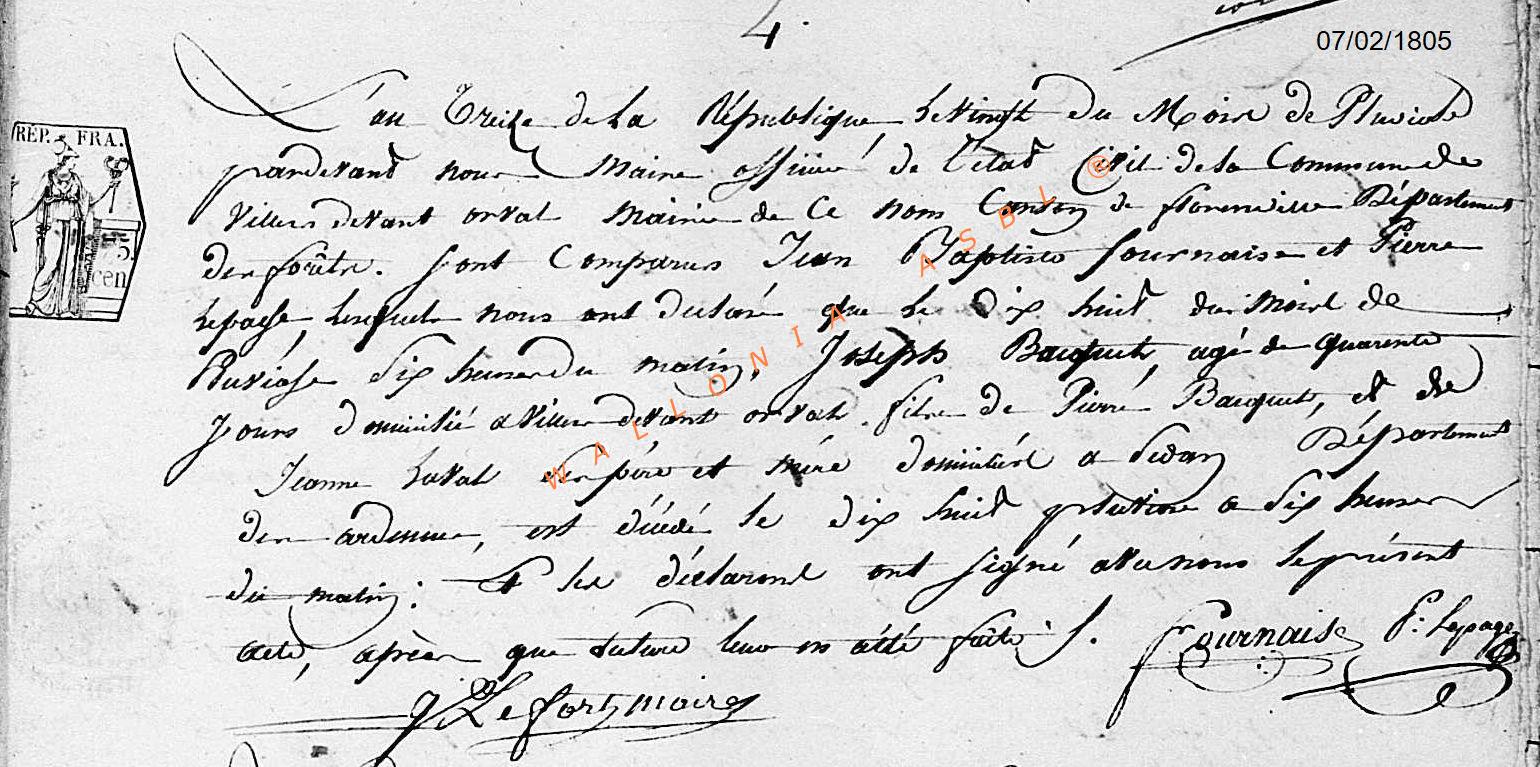 4
07/02/1805
L'an Treize de la République, le vingt du Mois de Pluviose
pardevant nous Maire officier de l'etat Civil de la Commune de
Villers devant orval Mairie de Ce nom Canton de florenville Département
des forêts. sont Comparus Jean Baptiste fournaise et Pierre
lepage, lesquels nous ont déclaré que le dix huit du Mois de
Pluviose six heures du matin, Joseph Bacquet, agé de quarente
jours domicilié a Villers devant orval. fils de Pierre Bacquet, et de
Jeanne laval ses père et mére domiciliés a Sedan Département
des ardennes, est décédé le dix huit pluviose a six heures
du matin: et les déclarans ont signé avec nous le présent
acte, après que lecture leur en a été faite
fournaise P: lepage
J Lefort maire
REP. FRA.
75
cen
WALLONIA ASBL ®